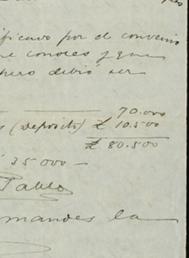 por el convenio
conoces y que
pero debió ser
70.000
(deposito) £ 10.500
£ 80.500
35000 —
Pablo
la